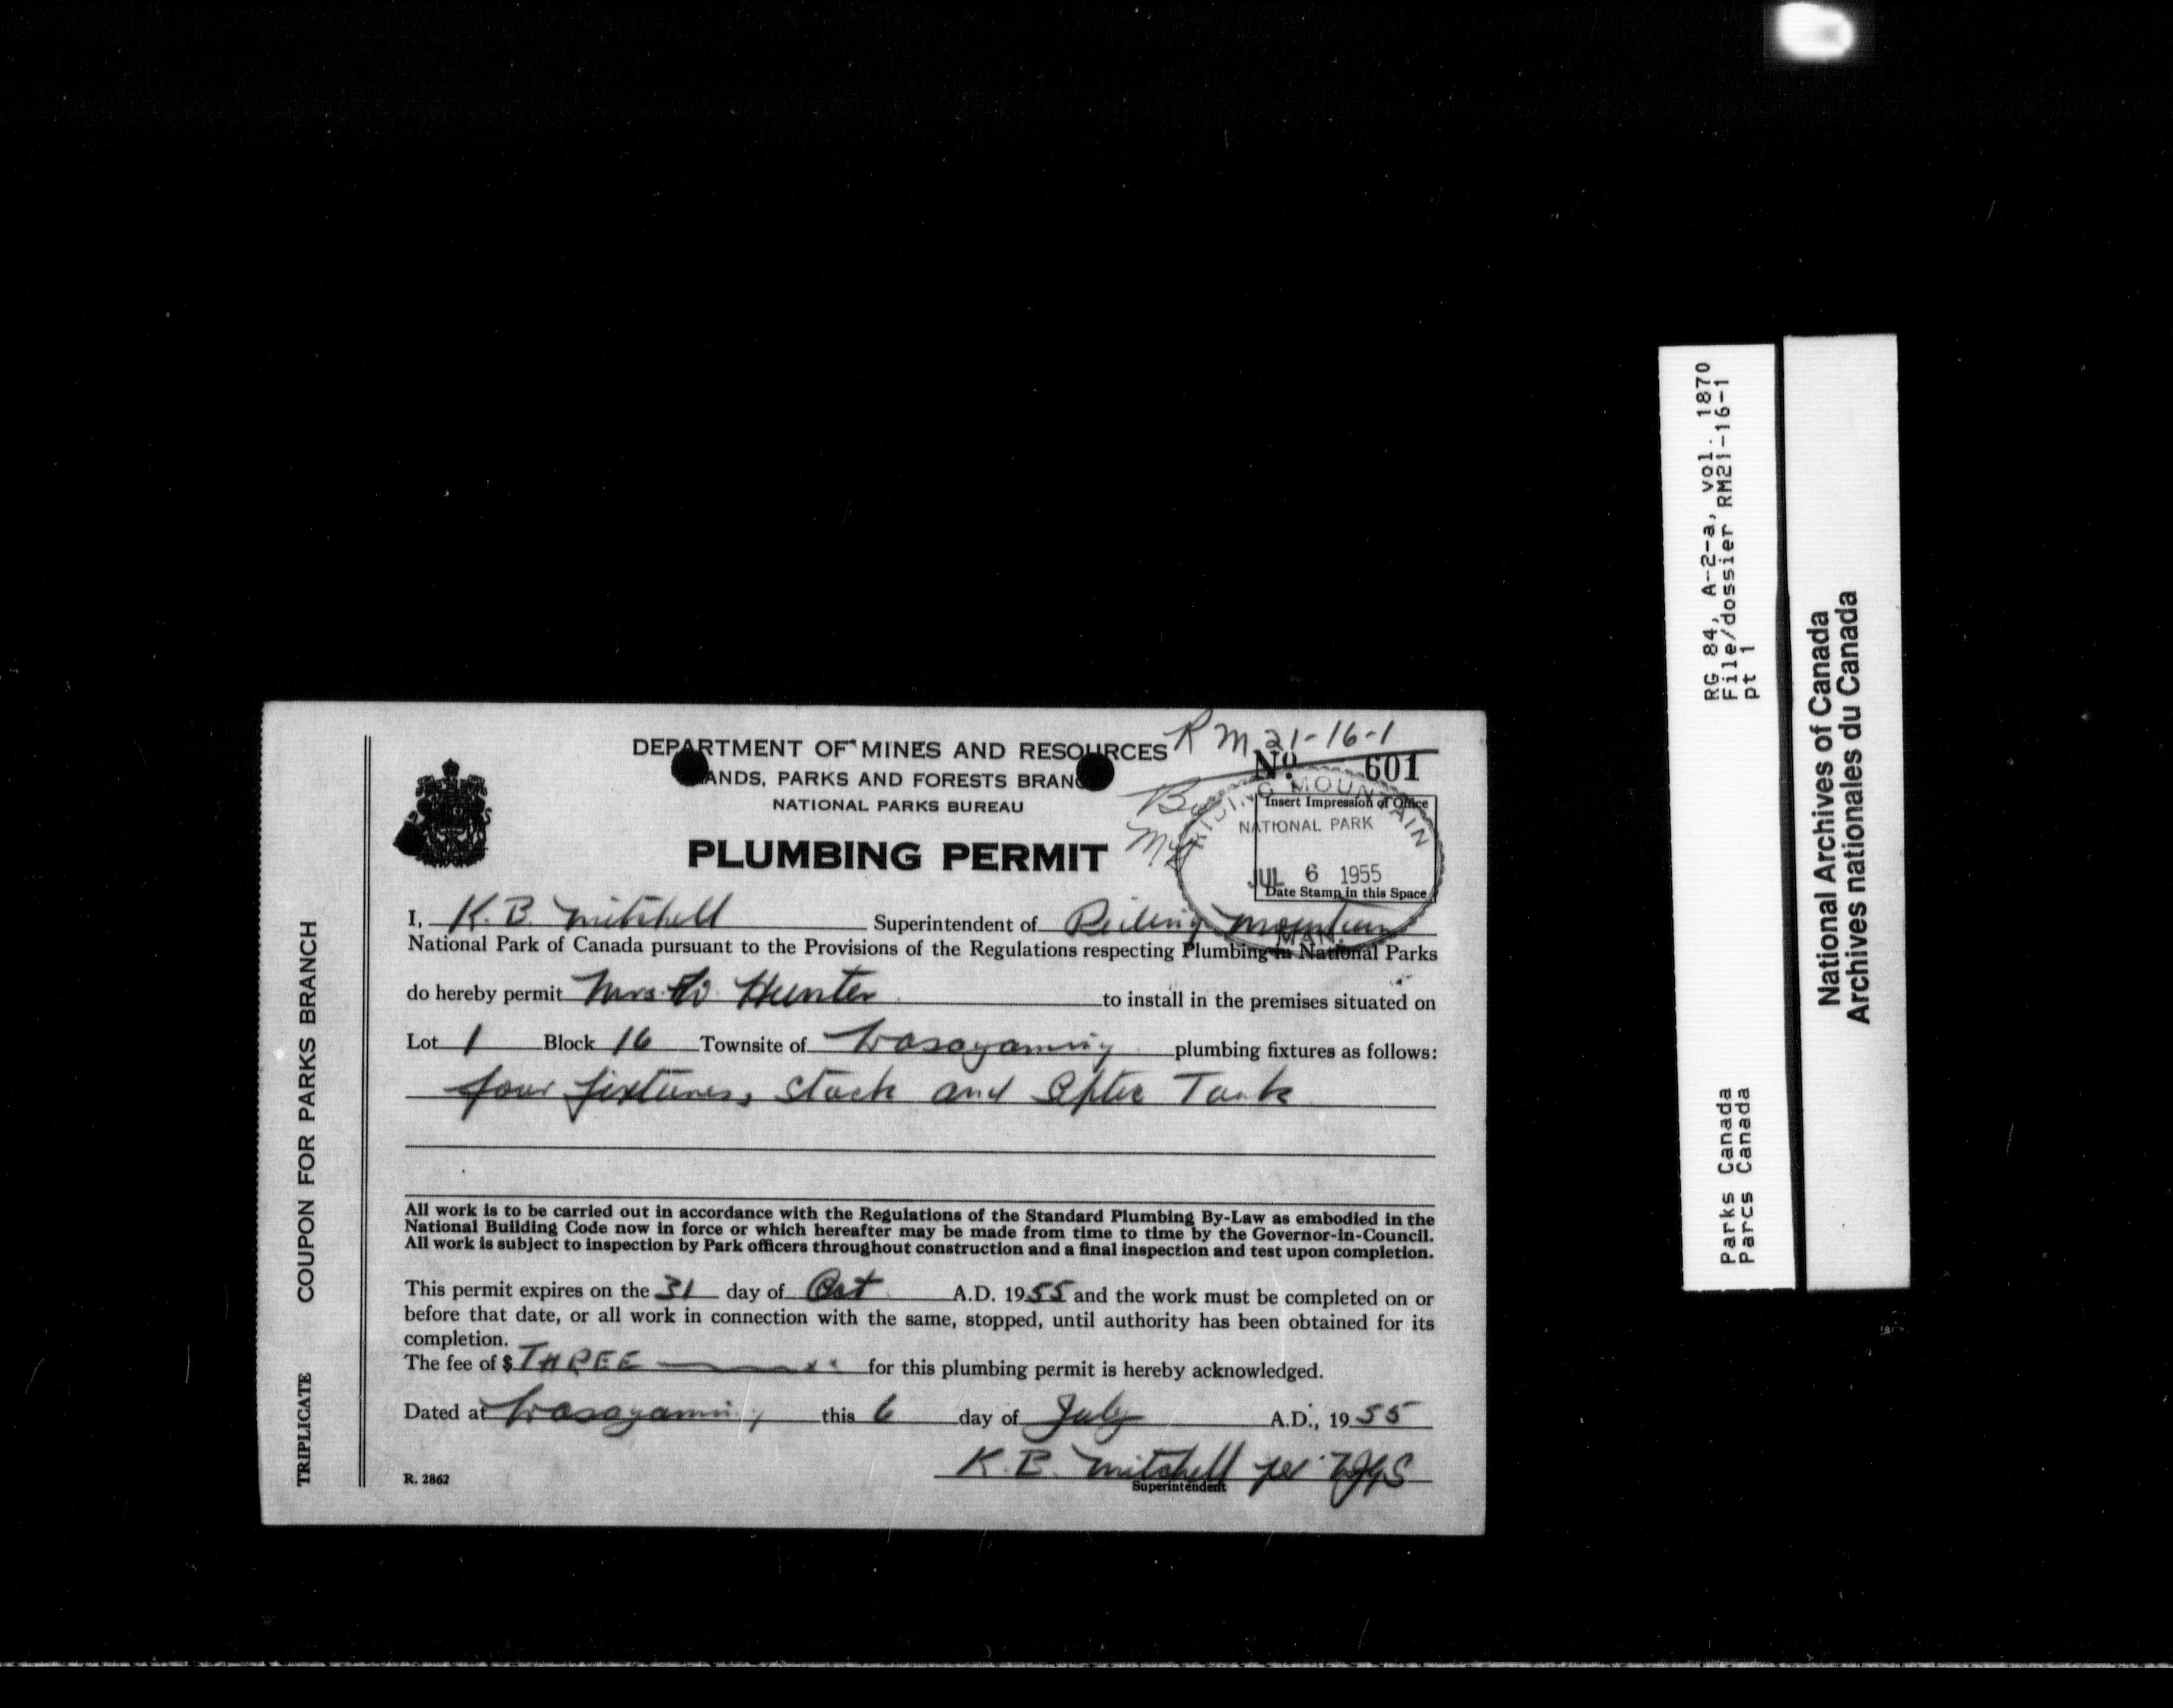 R M 21-16-1
DEPARTMENT OF MINES AND RESOURCES
ANDS, PARKS AND FORESTS BRANC
Nº 601
NATIONAL PARKS BUREAU
PLUMBING PERMIT
RIDING MOUNTAIN
Insert Impression of Office
NATIONAL PARK
JUL 6 1955
Date Stamp in this Space
MAN.
I, K. B. Mitchell Superintendent of Riding Mountain
National Park of Canada pursuant to the Provisions of the Regulations respecting Plumbing in National Parks
do hereby permit Mrs. W. Hunter to install in the premises situated on
Lot 1 Block 16 Townsite of Wasagaming plumbing fixtures as follows:
four fixtures, Stack and Septic Tank
All work is to be carried out in accordance with the Regulations of the Standard Plumbing By-Law as embodied in the
National Building Code now in force or which hereafter may be made from time to time by the Governor-in-Council.
All work is subject to inspection by Park officers throughout construction and a final inspection and test upon completion.
This permit expires on the 31 day of Oct A.D. 1955 and the work must be completed on or
before that date, or all work in connection with the same, stopped, until authority has been obtained for its
completion.
The fee of $ THREE for this plumbing permit is hereby acknowledged.
Dated at Wasagaming this 6 day of July A.D., 19 55
K. B. Mitchell per
Superintendent
R. 2862
TRIPLICATE COUPON FOR PARKS BRANCH
RG 84, A-2-a, vol. 1870
File/dossier RM21-16-1
pt 1
Parks Canada
Parcs Canada
National Archives of Canada
Archives nationales du Canada